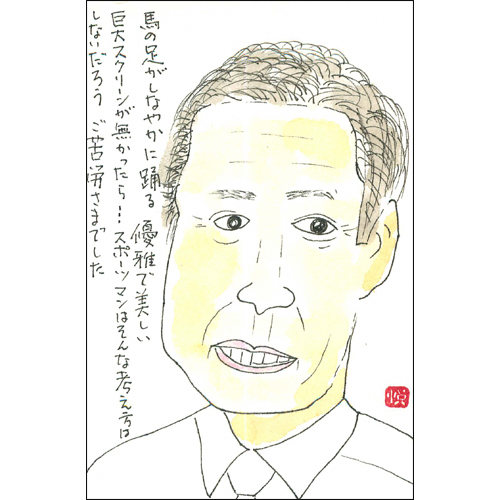 馬の足がしなやかに踊る 優雅で美しい
巨大スクリーンが無かったら… スポーツマンはそんな考え方は
しないだろう ご苦労さまでした